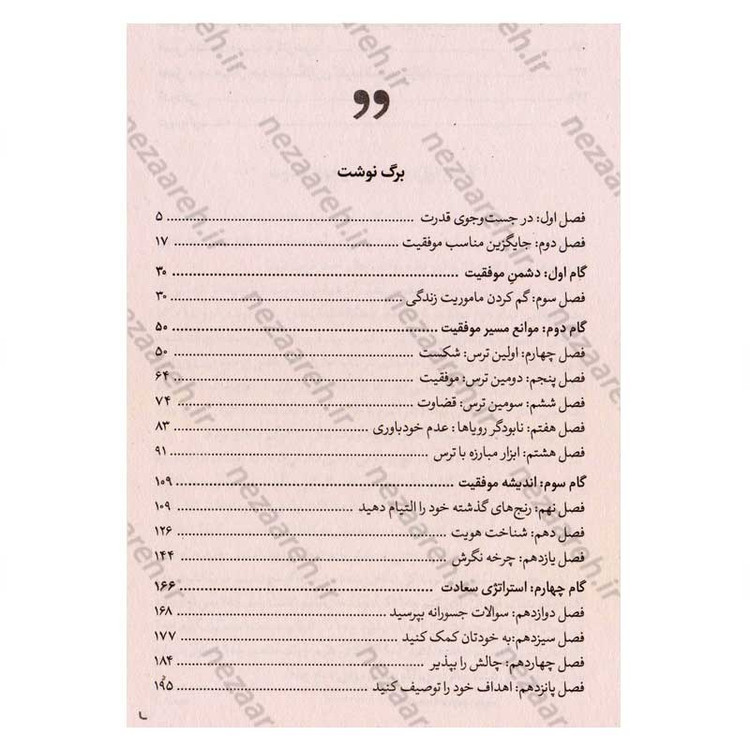 برگ نوشت
فصل اول: در جست‌وجوی قدرت ........ ۵
فصل دوم: جایگزین مناسب موفقیت ........ ۱۷
گام اول: دشمنِ موفقیت ........ ۳۰
فصل سوم: گم کردن ماموریت زندگی ........ ۳۰
گام دوم: موانع مسیر موفقیت ........ ۵۰
فصل چهارم: اولین ترس: شکست ........ ۵۰
فصل پنجم: دومین ترس: موفقیت ........ ۶۴
فصل ششم: سومین ترس: قضاوت ........ ۷۴
فصل هفتم: نابودگر رویاها: عدم خودباوری ........ ۸۳
فصل هشتم: ابزار مبارزه با ترس ........ ۹۱
گام سوم: اندیشه موفقیت ........ ۱۰۹
فصل نهم: رنج‌های گذشته خود را التیام دهید ........ ۱۰۹
فصل دهم: شناخت هویت ........ ۱۲۶
فصل یازدهم: چرخه نگرش ........ ۱۴۴
گام چهارم: استراتژی سعادت ........ ۱۶۶
فصل دوازدهم: سوالات جسورانه بپرسید ........ ۱۶۸
فصل سیزدهم:به خودتان کمک کنید ........ ۱۷۷
فصل چهاردهم: چالش را بپذیر ........ ۱۸۴
فصل پانزدهم: اهداف خود را توصیف کنید ........ ۱۹۵
nezaareh.ir